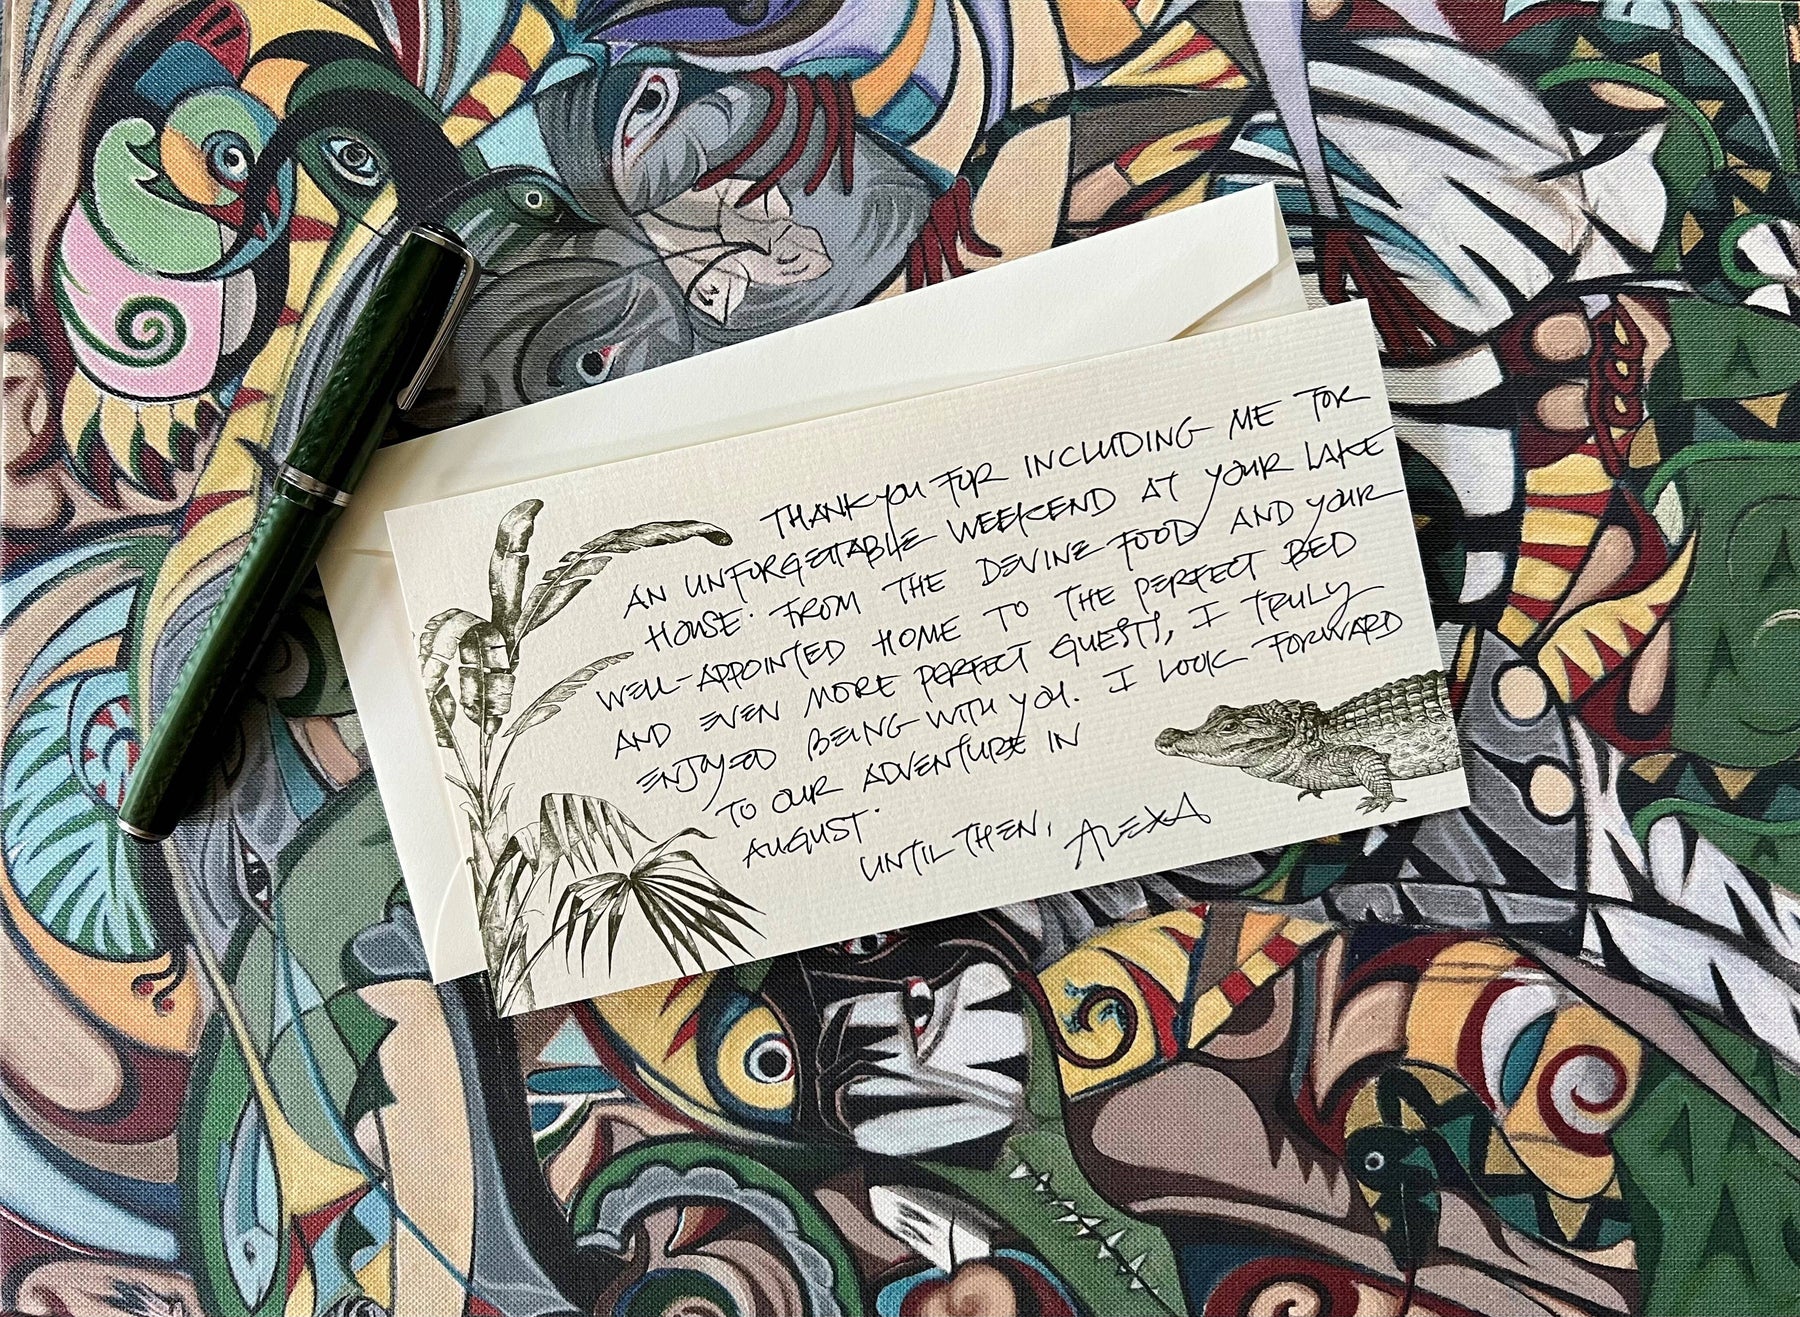 THANK YOU FOR INCLUDING ME FOR
AN UNFORGETTABLE WEEKEND AT YOUR LAKE
HOUSE. FROM THE DEVINE FOOD AND YOUR
WELL-APPOINTED HOME TO THE PERFECT BED
AND EVEN MORE PERFECT GUESTS, I TRULY
ENJOYED BEING WITH YOU. I LOOK FORWARD
TO OUR ADVENTURE IN
AUGUST.
UNTIL THEN,
ALEXA